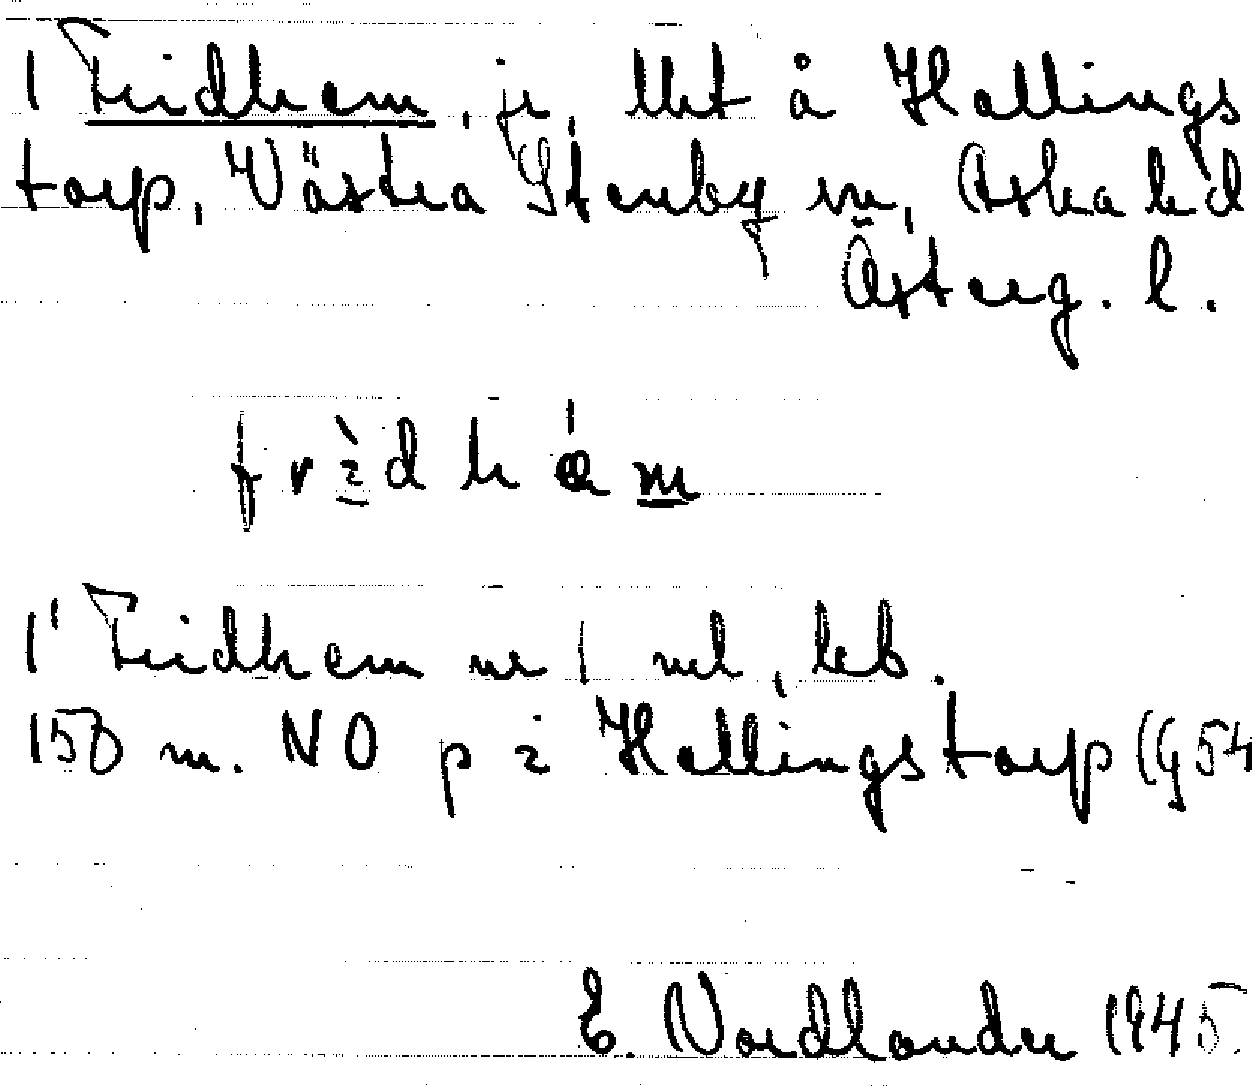 1 Fridhem, je, lht å Hallings
torp, Västra Stenby sn, Aska hd
Österg. l.
frèdhæm
1' Fridhem nr 1 mh, beb.
150 m. NO p 2 Hallingstorp (G54
E. Nordlander 1945.